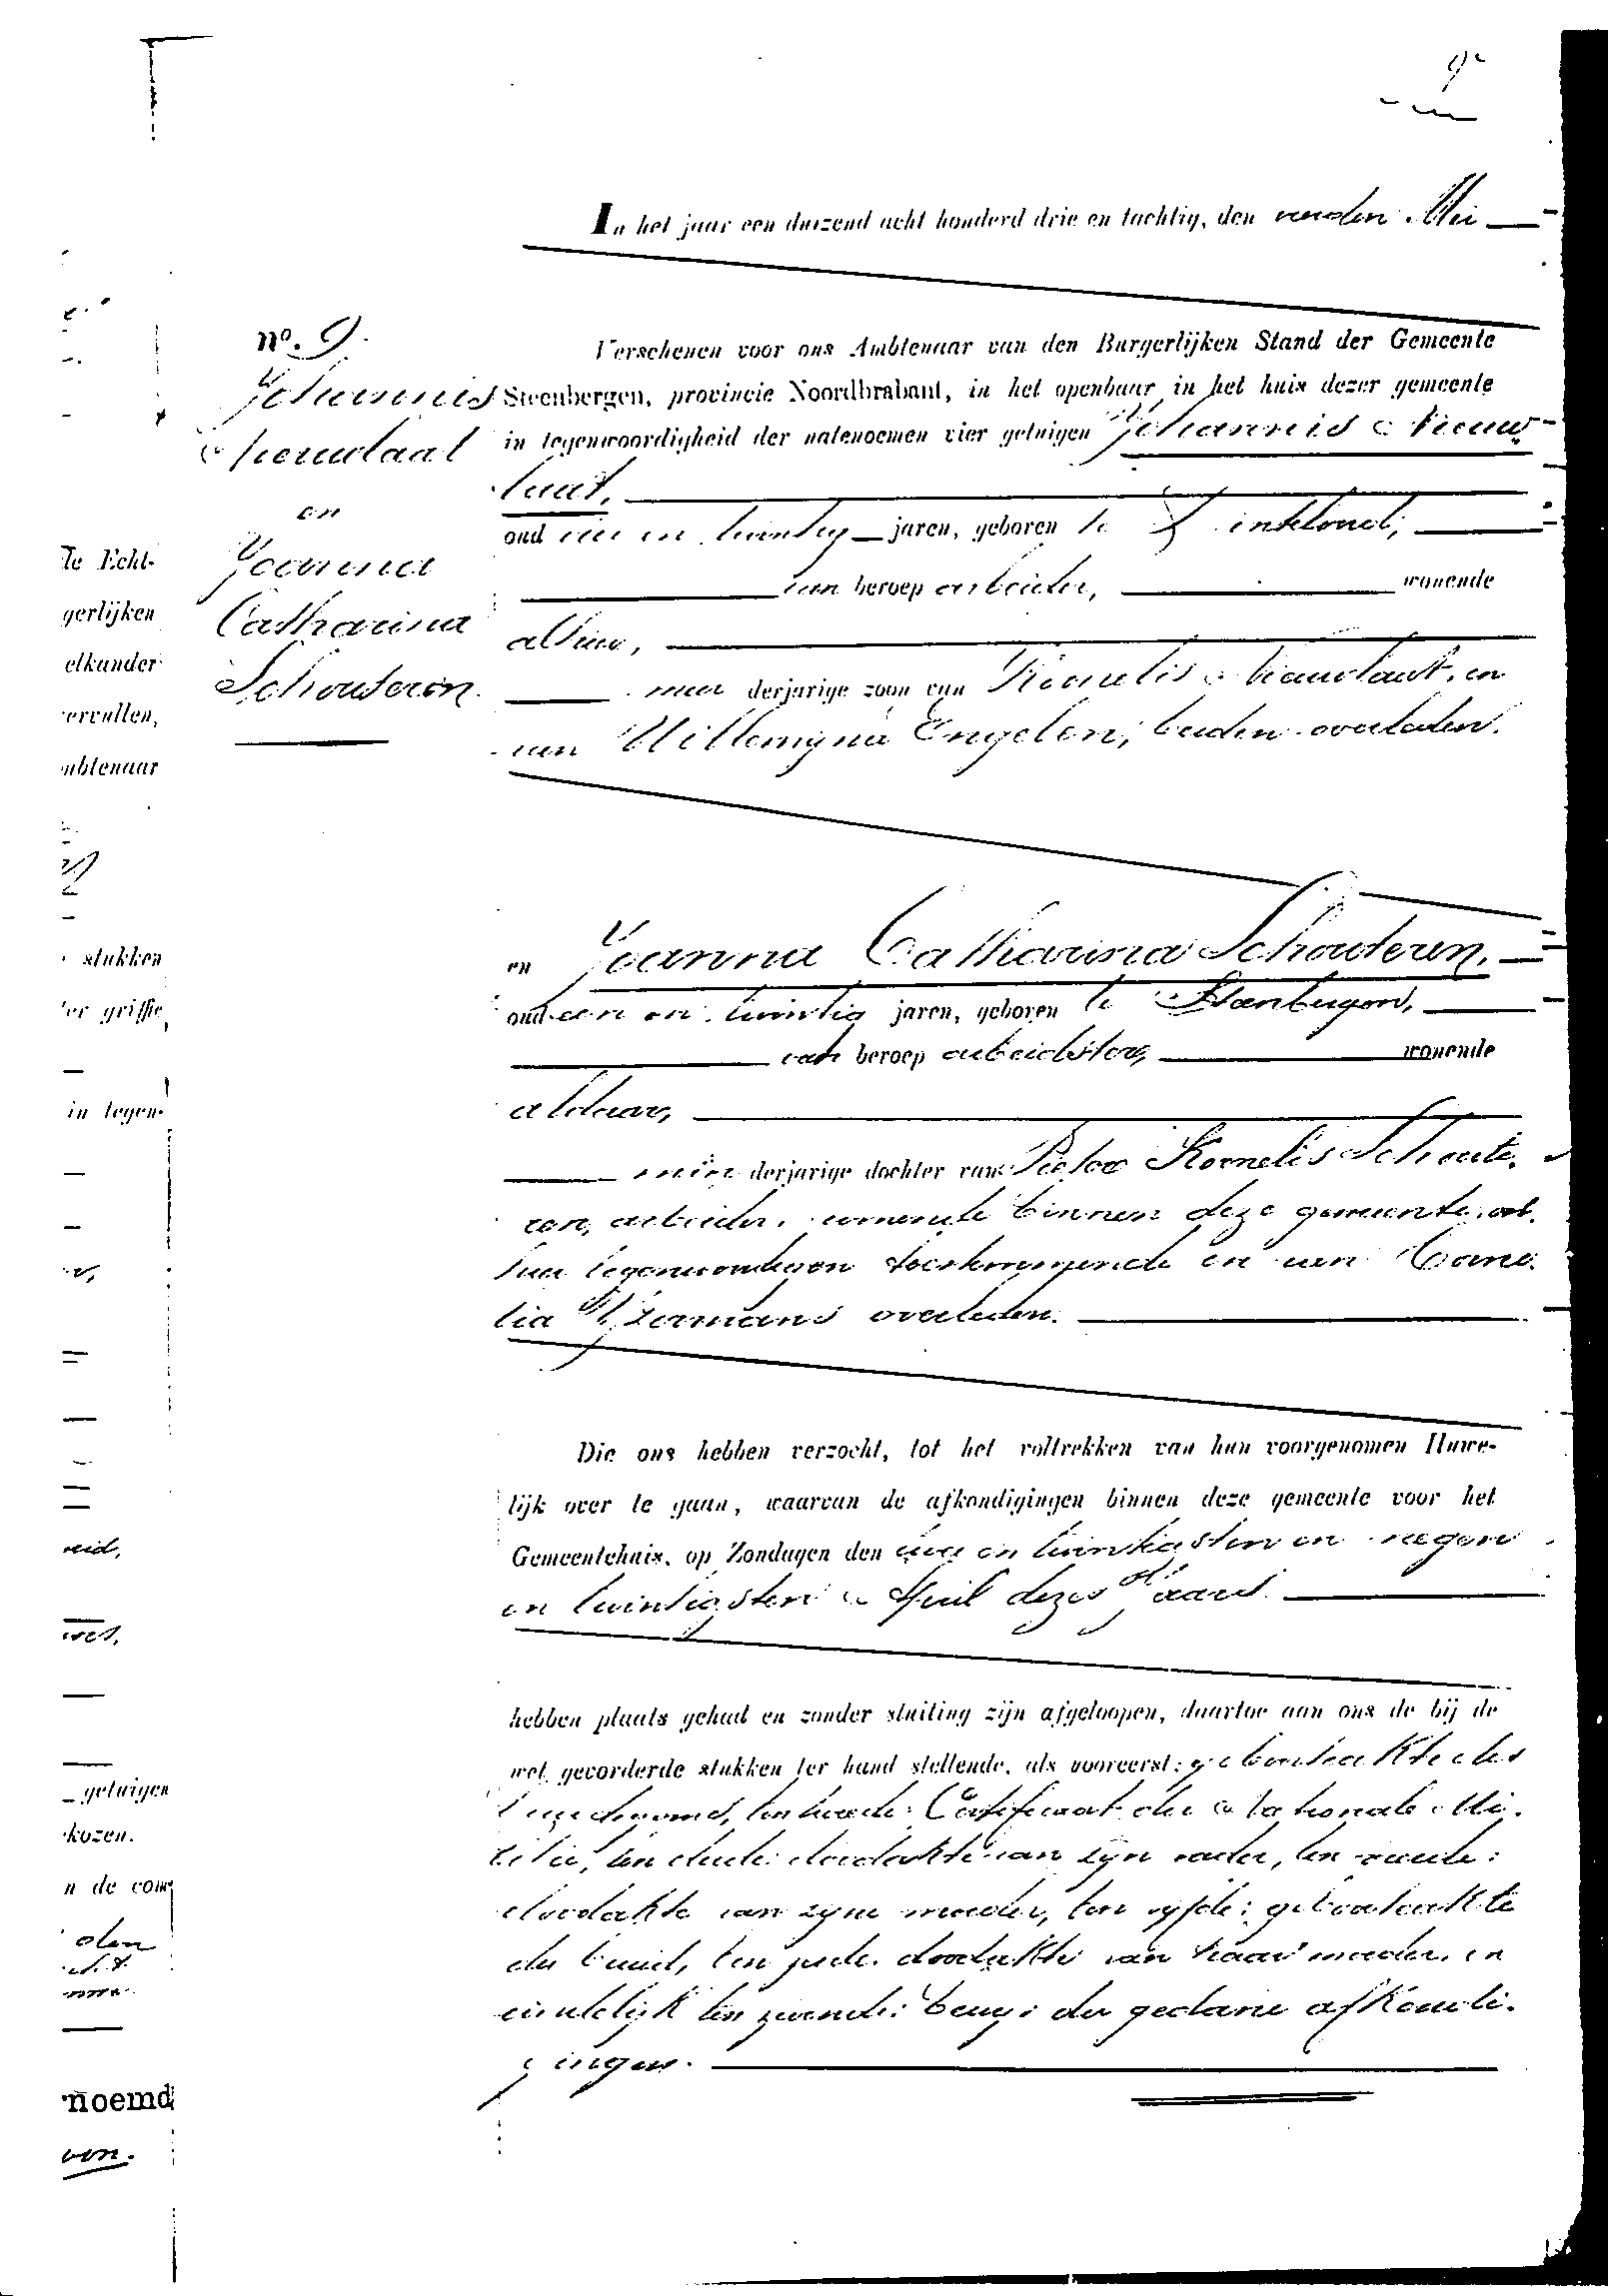 9
In het jaar een duizend acht honderd drie en tachtig, den Mei
no. 9.
Johannis
Nieuwlaat
en
Joanna
Catharina
Schouteren.
Verschenen voor ons Ambtenaar van den Burgerlijken Stand der Gemeente
Steenbergen, provincie Noordbrabant, in het openbaar in het huis dezer gemeente
in tegenwoordigheid der natenoemen vier getuigen Johannis Nieuw-
laat,
oud en twintig jaren, geboren te
van beroep arbeider, wonende
alhier,
meerderjarige zoon van Kornelis Nieuwlaat, en
van Willemyna Engelen, beiden overleden.
en Joanna Catharina Schouteren,
oud een en twintig jaren, geboren te Steenbergen,
van beroep arbeidster, wonende
aldaar,
minderjarige dochter van Pieter Kornelis Schoute-
ren, arbeider, wonende binnen deze gemeente, al-
hier tegenwoordig en toestemmende en van Corne-
lia overleden.
Die ons hebben verzocht, tot het voltrekken van hun voorgenomen Huwe-
lijk over te gaan, waarvan de afkondigingen binnen deze gemeente voor het
Gemeentehuis, op Zondagen den twee en twintigsten en negen
en twintigsten April dezes Jaars.
hebben plaats gehad en zonder stuiting zijn afgeloopen, daartoe aan ons de bij de
wet gevorderde stukken ter hand stellende, als vooreerst: geboorteakte des
bruidegoms, ten tweede: Certificaat der Nationale Mi-
litie, ten derde: doodakte van zijn vader, ten vierde:
doodakte van zyne moeder, ten vyfde: geboorteakte
der bruid, ten zesde: doodakte van haar moeder, en
eindelijk ten zevende: bewys der gedane afkondi-
gingen.
de Echt-
gerlijken
elkander
vervullen,
mbtenaar
stukken
ter griffie,
in tegen-
getuigen
kozen.
n de com
noemd